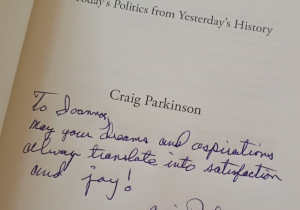 Today's Politics from Yesterday's History
Craig Parkinson
To Joanna,
May your dreams and aspirations
always translate into satisfaction
and joy!